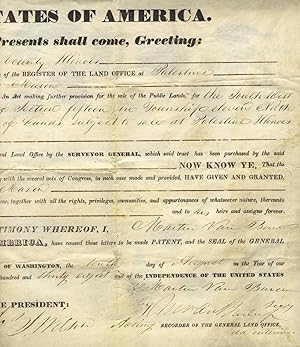 TATES OF AMERICA.
Presents shall come, Greeting:
County Illinois
of the REGISTER OF THE LAND OFFICE at Palestine
Mason
An Act making further provision for the sale of the Public Lands," for the South West
of Section in Township eleven North
of Lands subject to sale at Palestine Illinois
ral Land Office by the SURVEYOR GENERAL, which said tract has been purchased by the said
NOW KNOW YE, That the
ity with the several acts of Congress, in such case made and provided, HAVE GIVEN AND GRANTED,
Mason
ame, together with all the rights, privileges, immunities, and appurtenances of whatsoever nature, thereunto
and to his heirs and assigns forever.
TIMONY WHEREOF, I, Martin Van Buren
MERICA, have caused these letters to be made PATENT, and the SEAL of the GENERAL
OF WASHINGTON, the day of August in the Year of our
undred and thirty eight and of the INDEPENDENCE OF THE UNITED STATES
Martin Van Buren
HE PRESIDENT:
Acting RECORDER OF THE GENERAL LAND OFFICE,
ad interim